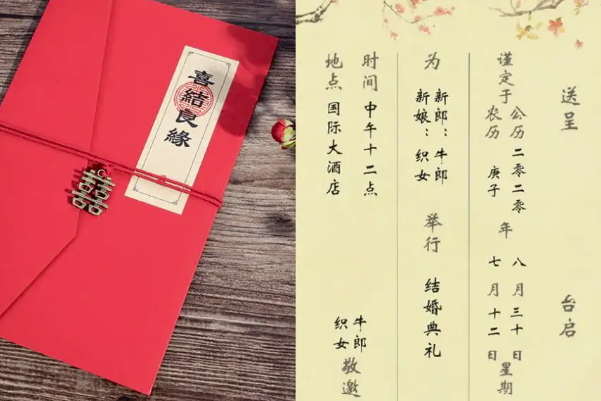 喜結良緣
囍
送呈 台启
谨定于
公历 二零二零
农历 庚子
年
八月三十日
七月十二日
星期
为
新郎：牛郎
新娘：织女
举行
结婚典礼
时间 中午十二点
地点 国际大酒店
牛郎
织女
敬邀